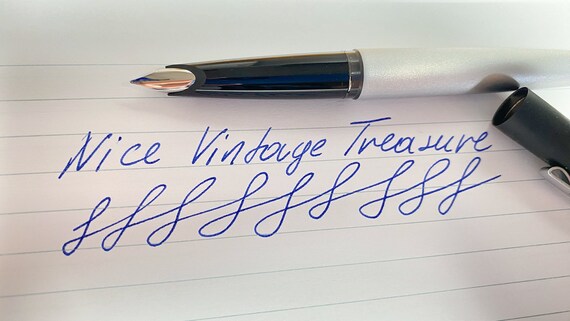 Nice Vintage Treasure